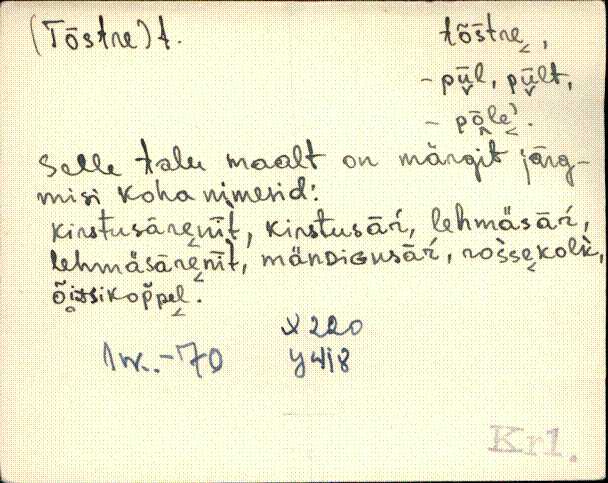 (Tōstre) t.
tȭstre̬,
- pǖ̬l, pǖ̬lt,
- pǭle̬'.
Selle talu maalt on märgit järg-
misi kohanimesid:
kirstusäre̬nīt, kirstusäŕ, lehmäsäŕ,
lehmäsäre̬nīt, mändiGusäŕ, rosse̬kolk,
õitsikoppe̬l.
1w.-70
x 220
y 418
Kr1.